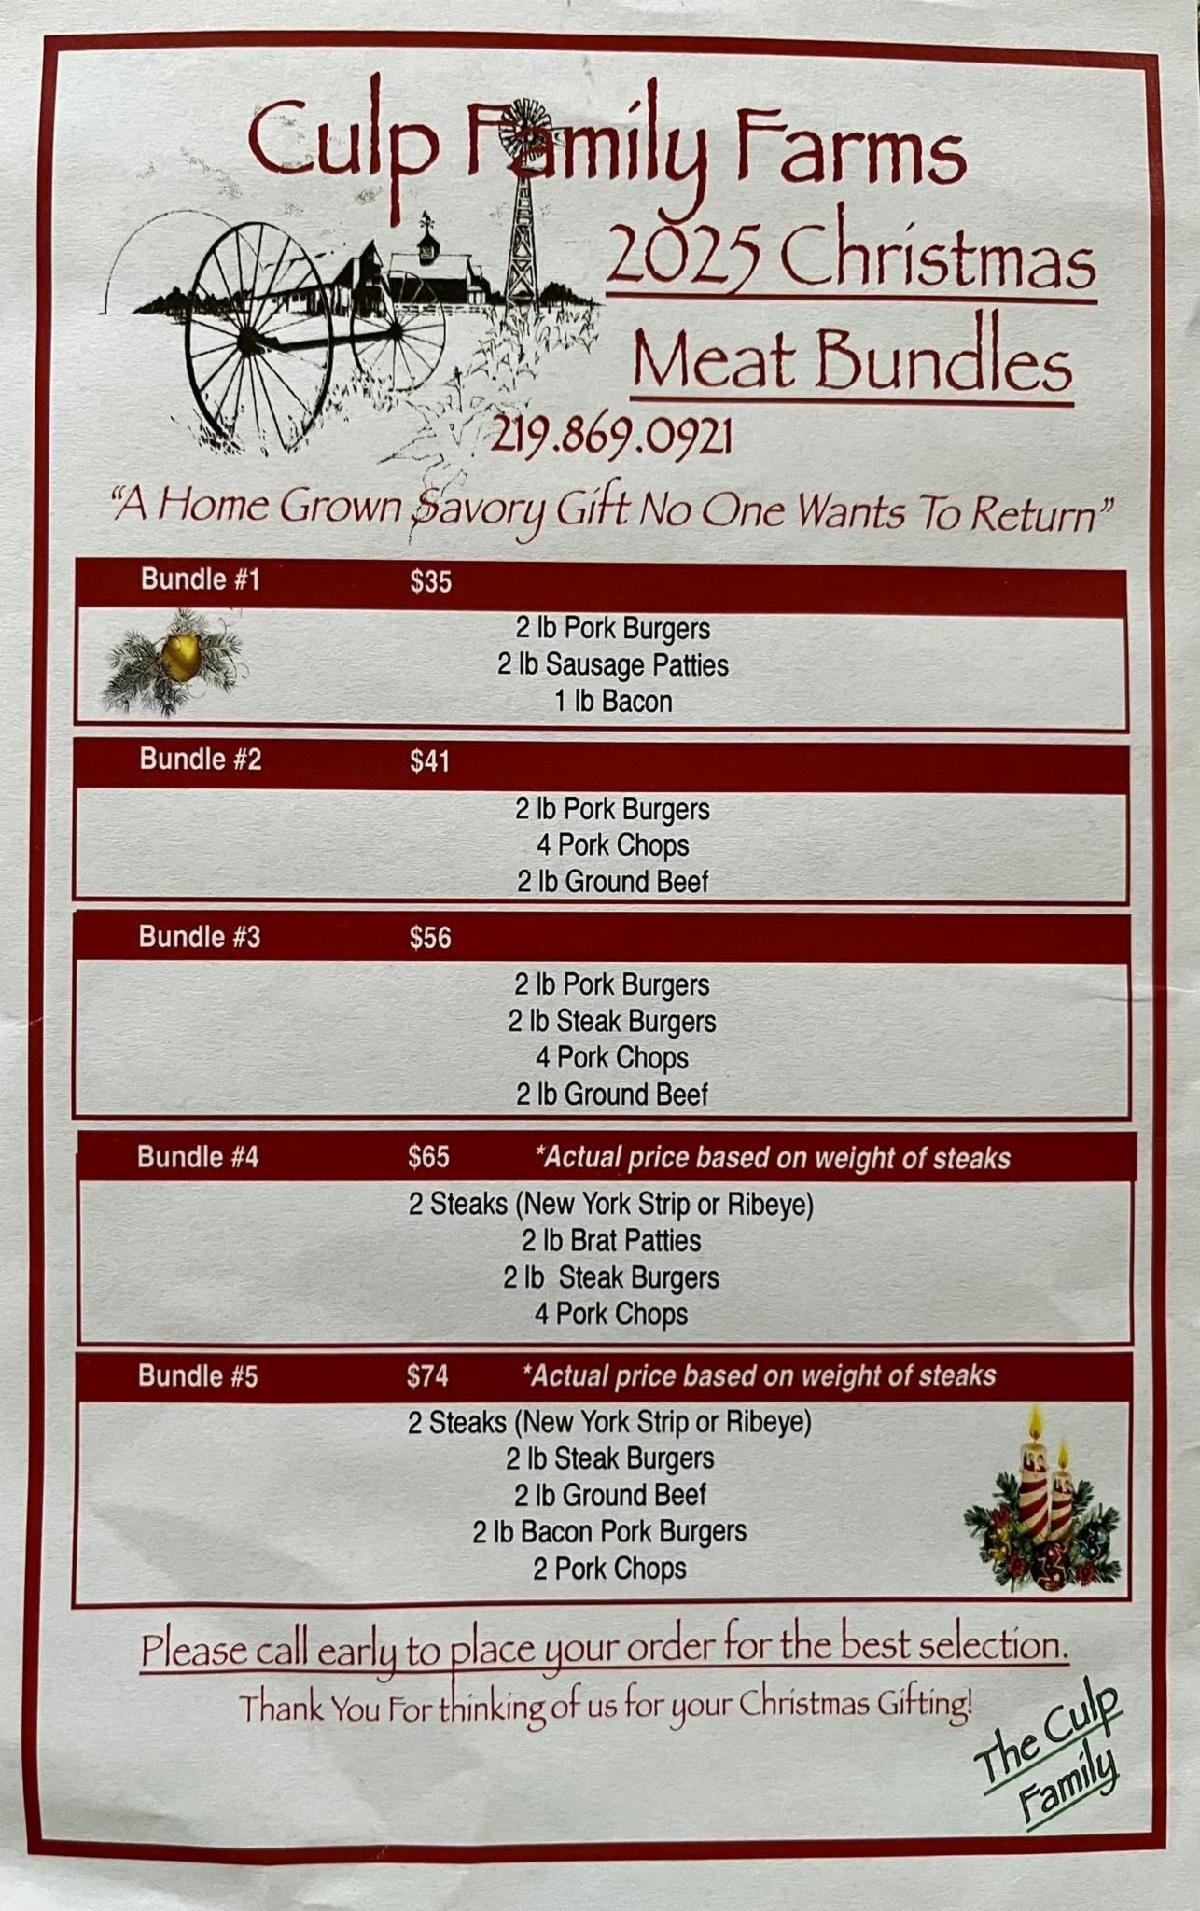 Culp Family Farms
2025 Christmas
Meat Bundles
219.869.0921
“A Home Grown Savory Gift No One Wants To Return”
Bundle #1 $35
2 lb Pork Burgers
2 lb Sausage Patties
1 lb Bacon
Bundle #2 $41
2 lb Pork Burgers
4 Pork Chops
2 lb Ground Beef
Bundle #3 $56
2 lb Pork Burgers
2 lb Steak Burgers
4 Pork Chops
2 lb Ground Beef
Bundle #4 $65 *Actual price based on weight of steaks
2 Steaks (New York Strip or Ribeye)
2 lb Brat Patties
2 lb Steak Burgers
4 Pork Chops
Bundle #5 $74 *Actual price based on weight of steaks
2 Steaks (New York Strip or Ribeye)
2 lb Steak Burgers
2 lb Ground Beef
2 lb Bacon Pork Burgers
2 Pork Chops
Please call early to place your order for the best selection.
Thank You For thinking of us for your Christmas Gifting!
The Culp
Family